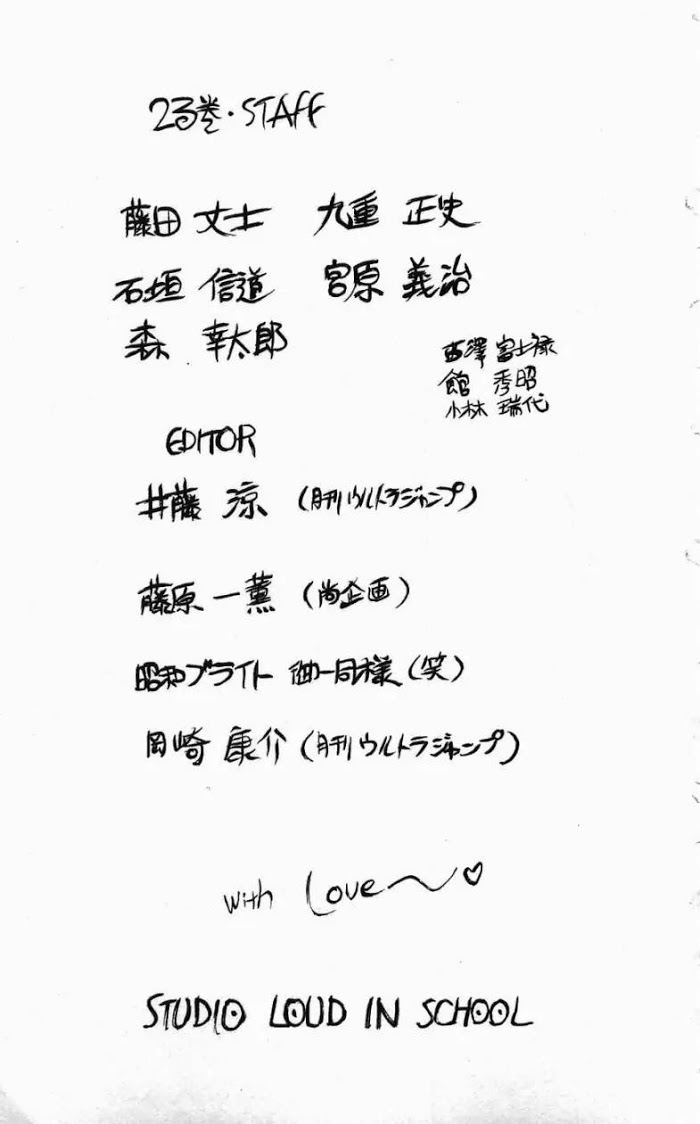 23巻・STAFF
藤田 丈士 九重 正史
石垣 信道 宮原 義治
森 幸太郎
西澤 富士禄
館 秀昭
小林 瑞代
EDITOR
井藤 涼 (月刊ウルトラジャンプ)
藤原 一薫 (尚企画)
昭和ブライト 御一同様(笑)
岡崎 康介 (月刊ウルトラジャンプ)
with Love〜♡
STUDIO LOUD IN SCHOOL